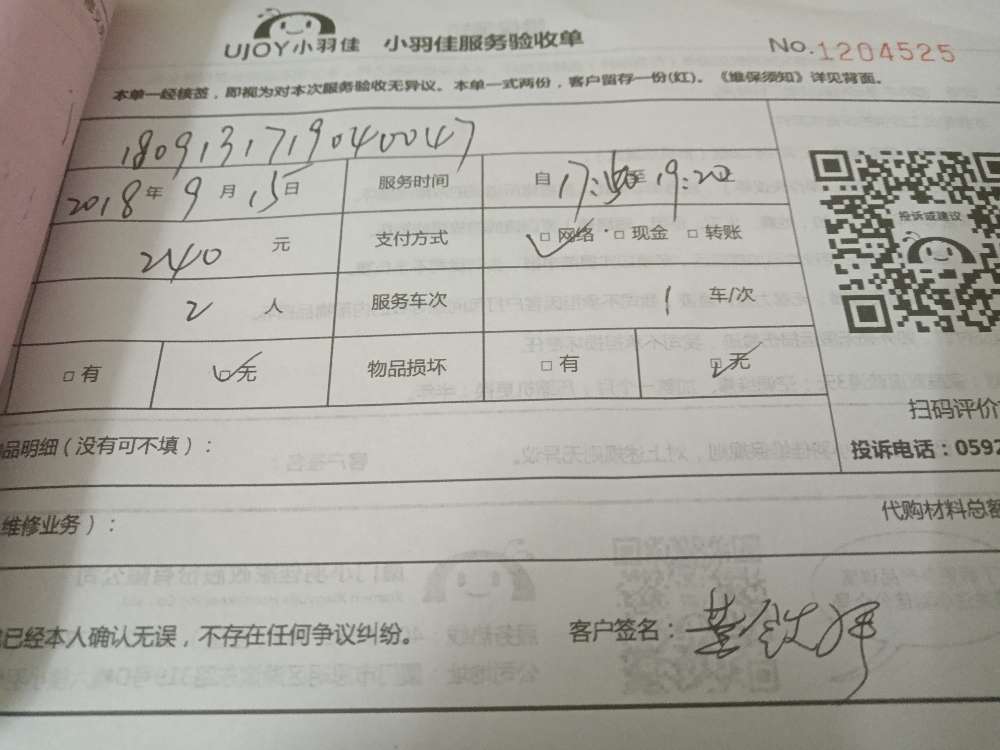 UJOY小羽佳 小羽佳服务验收单 No.1204525
本单一经核签，即视为对本次服务验收无异议。本单一式两份，客户留存一份(红)。《维保须知》详见背面。
1809131719040047
2018年9月15日 服务时间 自17:50至19:20
240元 支付方式 □网络 □现金 □转账
2人 服务车次 1车/次
□有 □无 物品损坏 □有 □无
投诉或建议
扫码评价
品明细(没有可不填)：
投诉电话：0592
维修业务)：
代购材料总额
已经本人确认无误，不存在任何争议纠纷。 客户签名：